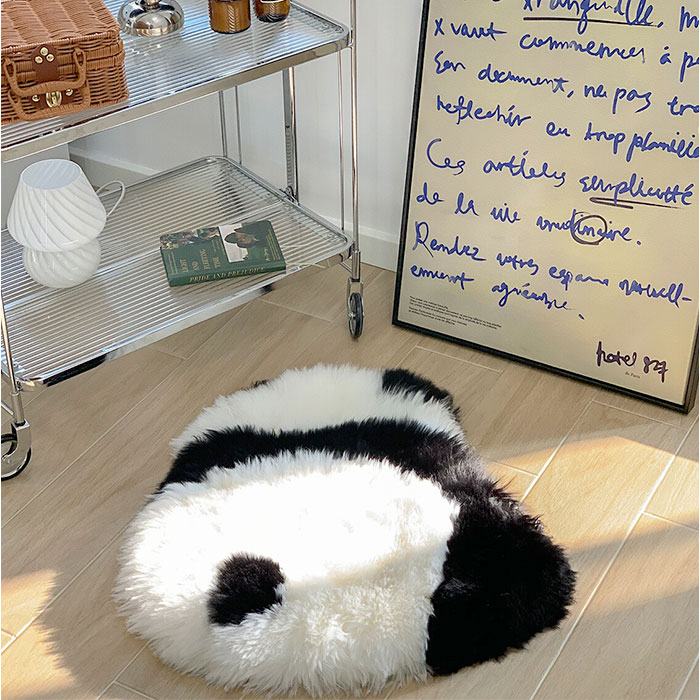 tranquille, m
xvaut commences à p
Son document, ne pas tra
reflechir eu trop planille
Ces artiéles simplicité
de la vie wudinaire.
Rendez vôtres espama nuvell-
ement agnéable.
hotel 827
de Paris
PRIDE AND PREJUDICE